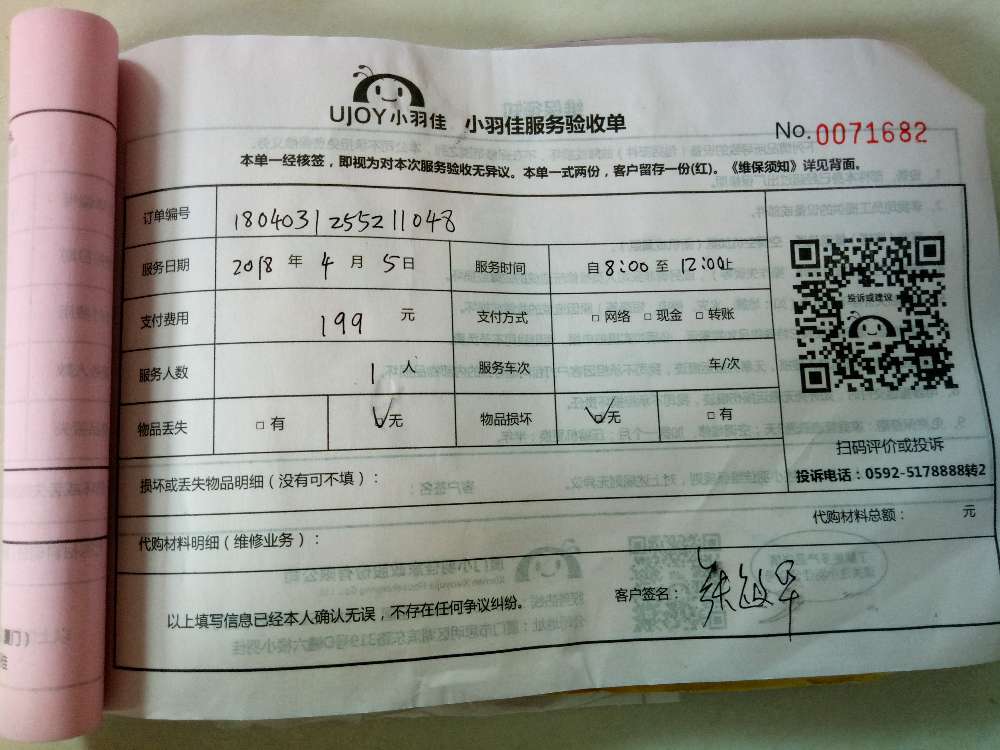 UJOY小羽佳 小羽佳服务验收单
No.0071682
本单一经核签，即视为对本次服务验收无异议。本单一式两份，客户留存一份(红)。《维保须知》详见背面。
订单编号 1804031255211048
服务日期 2018 年 4 月 5 日 服务时间 自 8:00 至 12:00止
支付费用 199 元 支付方式 □ 网络 □ 现金 □ 转账
投诉或建议
服务人数 1 人 服务车次 车/次
物品丢失 □ 有 ☑无 物品损坏 ☑无 □ 有
扫码评价或投诉
投诉电话：0592-5178888转2
损坏或丢失物品明细（没有可不填）：
代购材料总额： 元
代购材料明细（维修业务）：
以上填写信息已经本人确认无误，不存在任何争议纠纷。 客户签名：